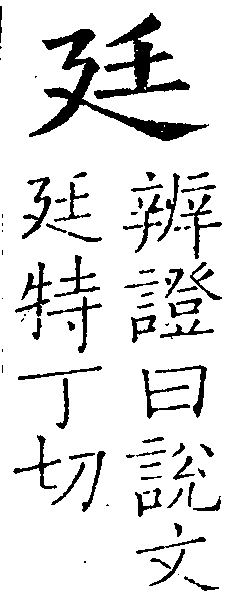 廷
辨證曰說文
廷特丁切